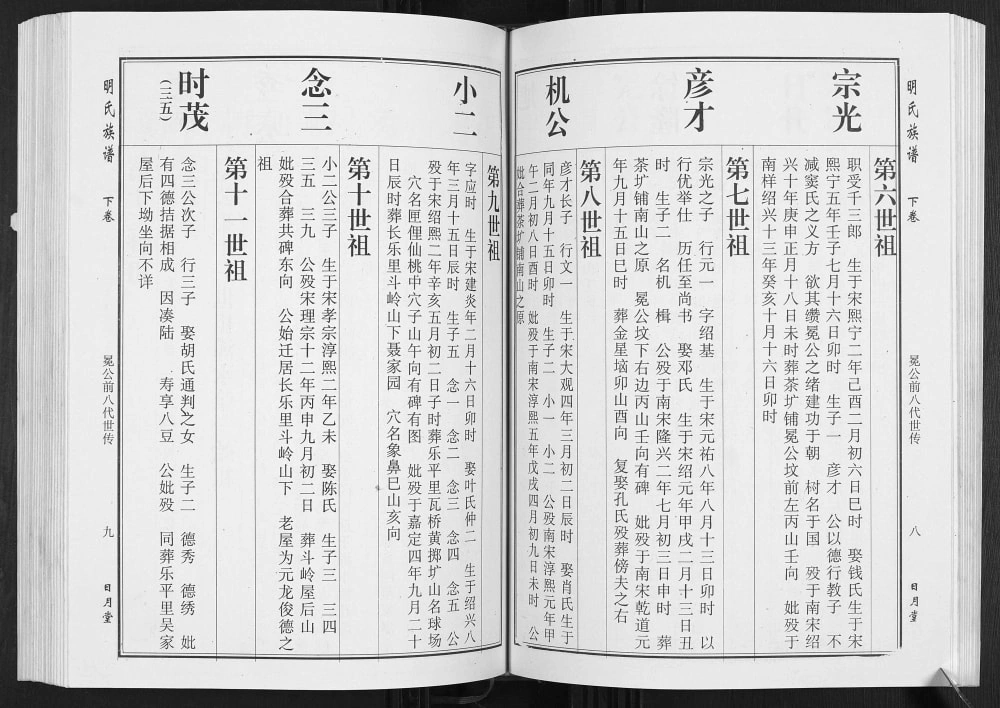 明氏族谱
下卷
冕公前八代世传
八
日月堂
宗光
第六世祖
职受千三郎 生于宋熙宁二年己酉二月初六日巳时 娶钱氏生于宋
熙宁五年壬子七月十六日卯时 生子一 彦才 公以德行教子 不
减窦氏之义方 欲其缵冕公之绪建功于朝 树名于国 殁于南宋绍
兴十年庚申正月十八日未时葬茶圹铺冕公坟前左丙山壬向 妣殁于
南样绍兴十三年癸亥十月十六日卯时
彦才
第七世祖
宗光之子 行元一 字绍基 生于宋元祐八年八月十三日卯时 以
行优举仕 历任至尚书 娶邓氏 生于宋绍元年甲戌二月十三日丑
时 生子二 名机 楫 公殁于南宋隆兴二年七月初三日申时 葬
茶圹铺南山之原 冕公坟下右边丙山壬向有碑 妣殁于南宋乾道元
年九月十五日巳时 葬金星垴卯山酉向 复娶孔氏殁葬傍夫之右
机公
第八世祖
彦才长子 行文一 生于宋大观四年三月初二日辰时 娶肖氏生于
同年九月十五日卯时 生子二 小一 小二 公殁南宋淳熙元年甲
午二月初八日酉时 妣殁于南宋淳熙五年戊戌四月初九日未时 公
妣合葬茶圹铺南山之原
小二
第九世祖
字应时 生于宋建炎年二月十六日卯时 娶叶氏仲二 生于绍兴八
年三月十五日辰时 生子五 念一 念二 念三 念四 念五 公
殁于宋绍熙二年辛亥五月初二日子时葬乐平里瓦桥黄掷圹山名球场
穴名匣俚仙桃中穴子山午向有碑有图 妣殁于嘉定四年九月二十
日辰时葬长乐里斗岭山下聂家园 穴名象鼻巳山亥向
念三
第十世祖
小二公三子 生于宋孝宗淳熙二年乙未 娶陈氏 生子三 三四
三五 三九 公殁宋理宗十二年丙申九月初二日 葬斗岭屋后山
妣殁合葬共碑东向 公始迁居长乐里斗岭山下 老屋为元龙俊德之
祖
时茂
(三五)
第十一世祖
念三公次子 行三子 娶胡氏通判之女 生子二 德秀 德绣 妣
有四德拮据相成 因凑陆 寿享八豆 公妣殁 同葬乐平里吴家
屋后下坳坐向不详
明氏族谱
下卷
冕公前八代世传
九
日月堂